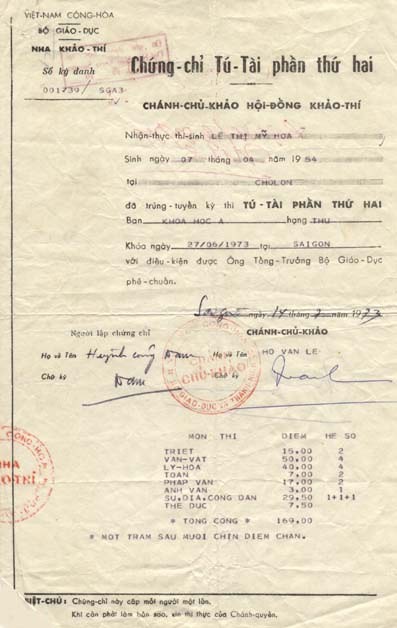 VIỆT-NAM CỘNG-HÒA
BỘ GIÁO-DỤC
NHA KHẢO-THÍ
Số ký danh
001739/ SGA3
Chứng-chỉ Tú-Tài phần thứ hai
CHÁNH-CHỦ-KHẢO HỘI-ĐỒNG KHẢO-THÍ
Nhận-thực thí-sinh LÊ THỊ MỸ HOA
Sinh ngày 07 tháng 04 năm 1954
tại CHOLON
đã trúng-tuyển kỳ thi TÚ-TÀI PHẦN THỨ HAI
Ban KHOA HOC A hạng THU
Khóa ngày 27/06/1973 tại SAIGON
với điều-kiện được Ông Tổng-Trưởng Bộ Giáo-Dục
phê-chuẩn.
Saigon ngày 14 tháng 7 năm 1973
Người lập chứng chỉ CHÁNH-CHỦ-KHẢO
Họ và Tên Huỳnh công Nam Họ và Tên HO VAN LE
Chữ ký Nam Chữ ký
MON THI DIEM HE SO
TRIET 15.00 2
VAN-VAT 50.00 4
LY-HOA 40.00 4
TOAN 7.00 2
PHAP VAN 17.00 2
ANH VAN 3.00 1
SU.DIA.CONG DAN 29.50 1+1+1
THE DUC 7.50
* TONG CONG * 169.00
* MOT TRAM SAU MUOI CHIN DIEM CHAN.
NHA
KHẢO-THÍ
CHÁNH
CHỦ-KHẢO
VIỆT-CHÚ : Chứng-chỉ này cấp mỗi người một lần.
Khi cần phải làm bản sao, xin thị thực của Chánh-quyền.